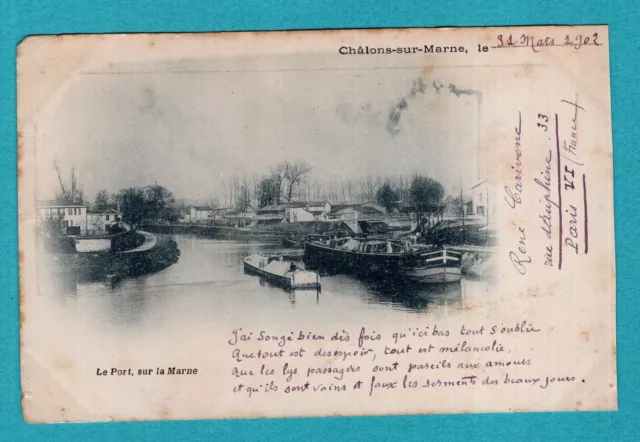 Châlons-sur-Marne, le 31 Mars 1902
René Carivenc
33
rue dauphine
Paris VI (France)
J'ai Songé bien des fois qu'ici bas tout s'oublie
Que tout est desespoir, tout est mélancolie,
Que les lys passagers sont pareils aux amours
et qu'ils sont vains et faux les serments des beaux jours.
Le Port, sur la Marne